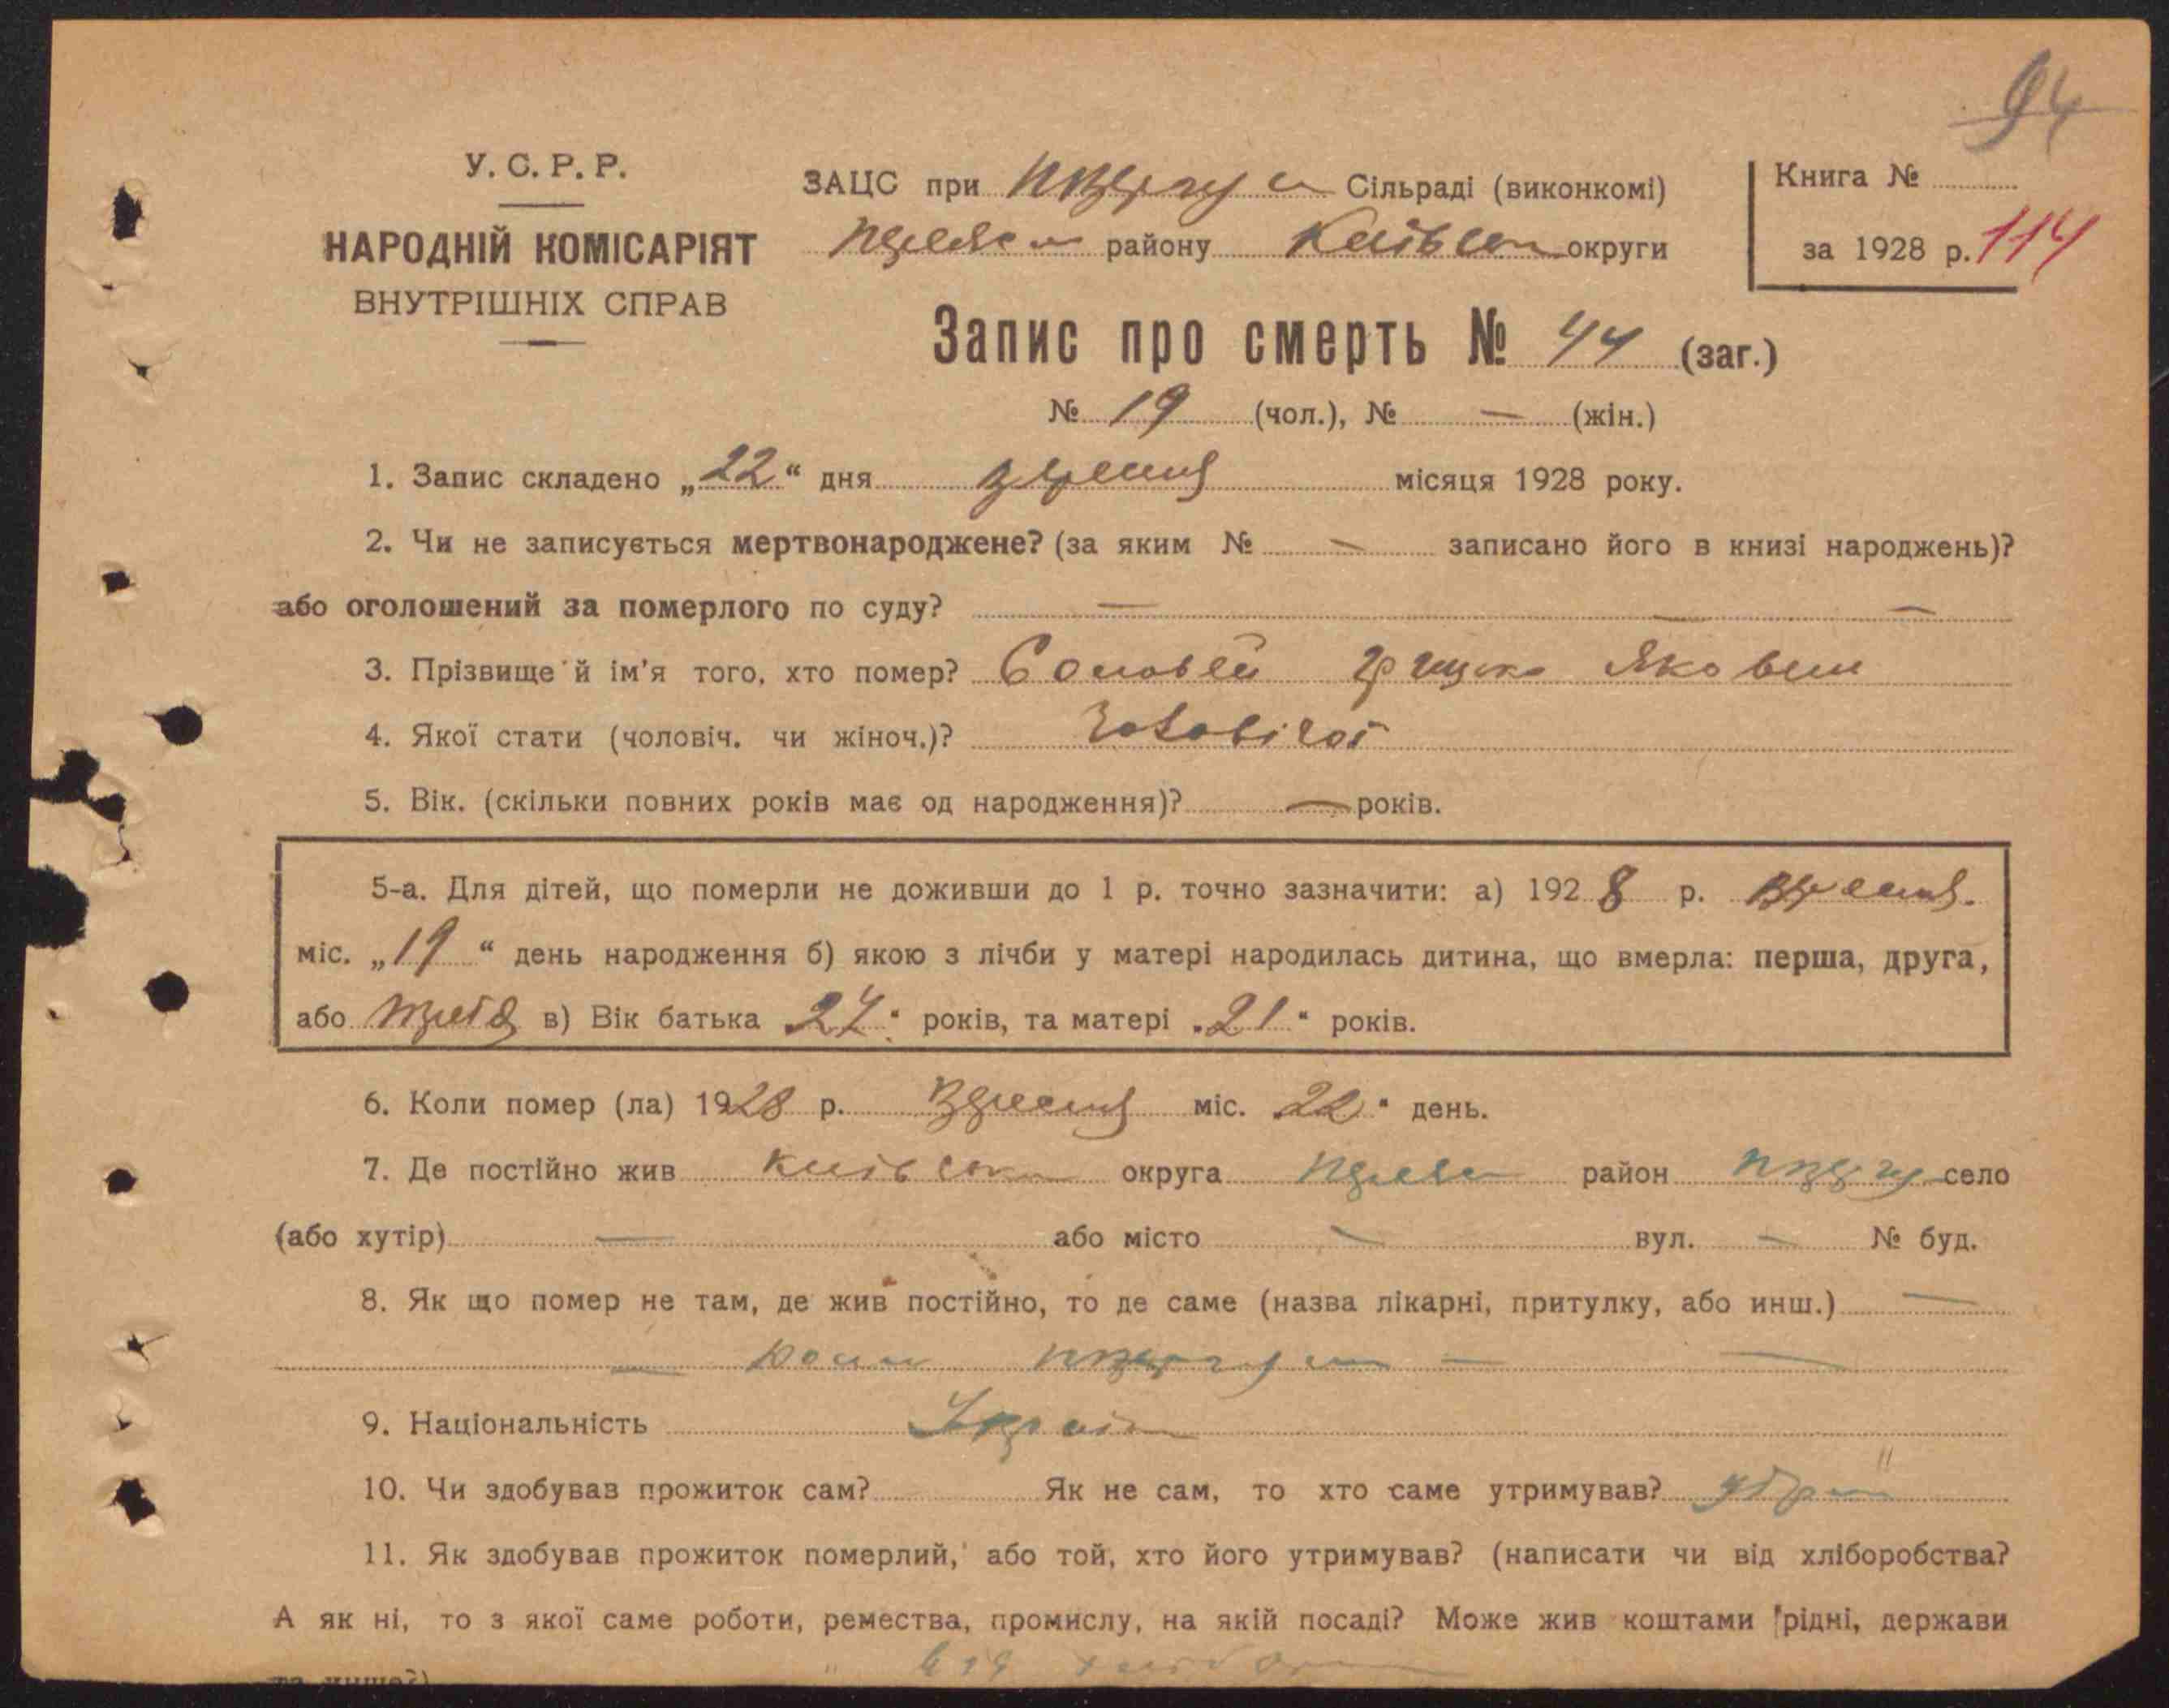 94
У. С. Р. Р.
НАРОДНІЙ КОМІСАРІЯТ
ВНУТРІШНІХ СПРАВ
ЗАЦС при Сільраді (виконкомі)
району Київськ округи
Книга №
за 1928 р. 114
Запис про смерть № 44 (заг.)
№ 19 (чол.), № — (жін.)
1. Запис складено „22“ дня вересня місяця 1928 року.
2. Чи не записується мертвонароджене? (за яким № — записано його в книзі народжень)?
або оголошений за померлого по суду? — — —
3. Прізвище й ім'я того, хто помер? Соловей Грицько Якович
4. Якої стати (чоловіч. чи жіноч.)? Чоловічої
5. Вік. (скільки повних років має од народження)? — років.
5-а. Для дітей, що померли не доживши до 1 р. точно зазначити: а) 1928 р. вересня
міс. „19“ день народження б) якою з лічби у матері народилась дитина, що вмерла: перша, друга,
або третя в) Вік батька 27 років, та матері „21“ років.
6. Коли помер (ла) 1928 р. Вересня міс. 22 день.
7. Де постійно жив Київськ округа район село
(або хутір) — або місто — вул. — № буд.
8. Як що помер не там, де жив постійно, то де саме (назва лікарні, притулку, або инш.) —
— — —
9. Національність Україн
10. Чи здобував прожиток сам? Як не сам, то хто саме утримував?
11. Як здобував прожиток померлий, або той, хто його утримував? (написати чи від хліборобства?
А як ні, то з якої саме роботи, ремества, промислу, на якій посаді? Може жив коштами рідні, держави
та инше?) від